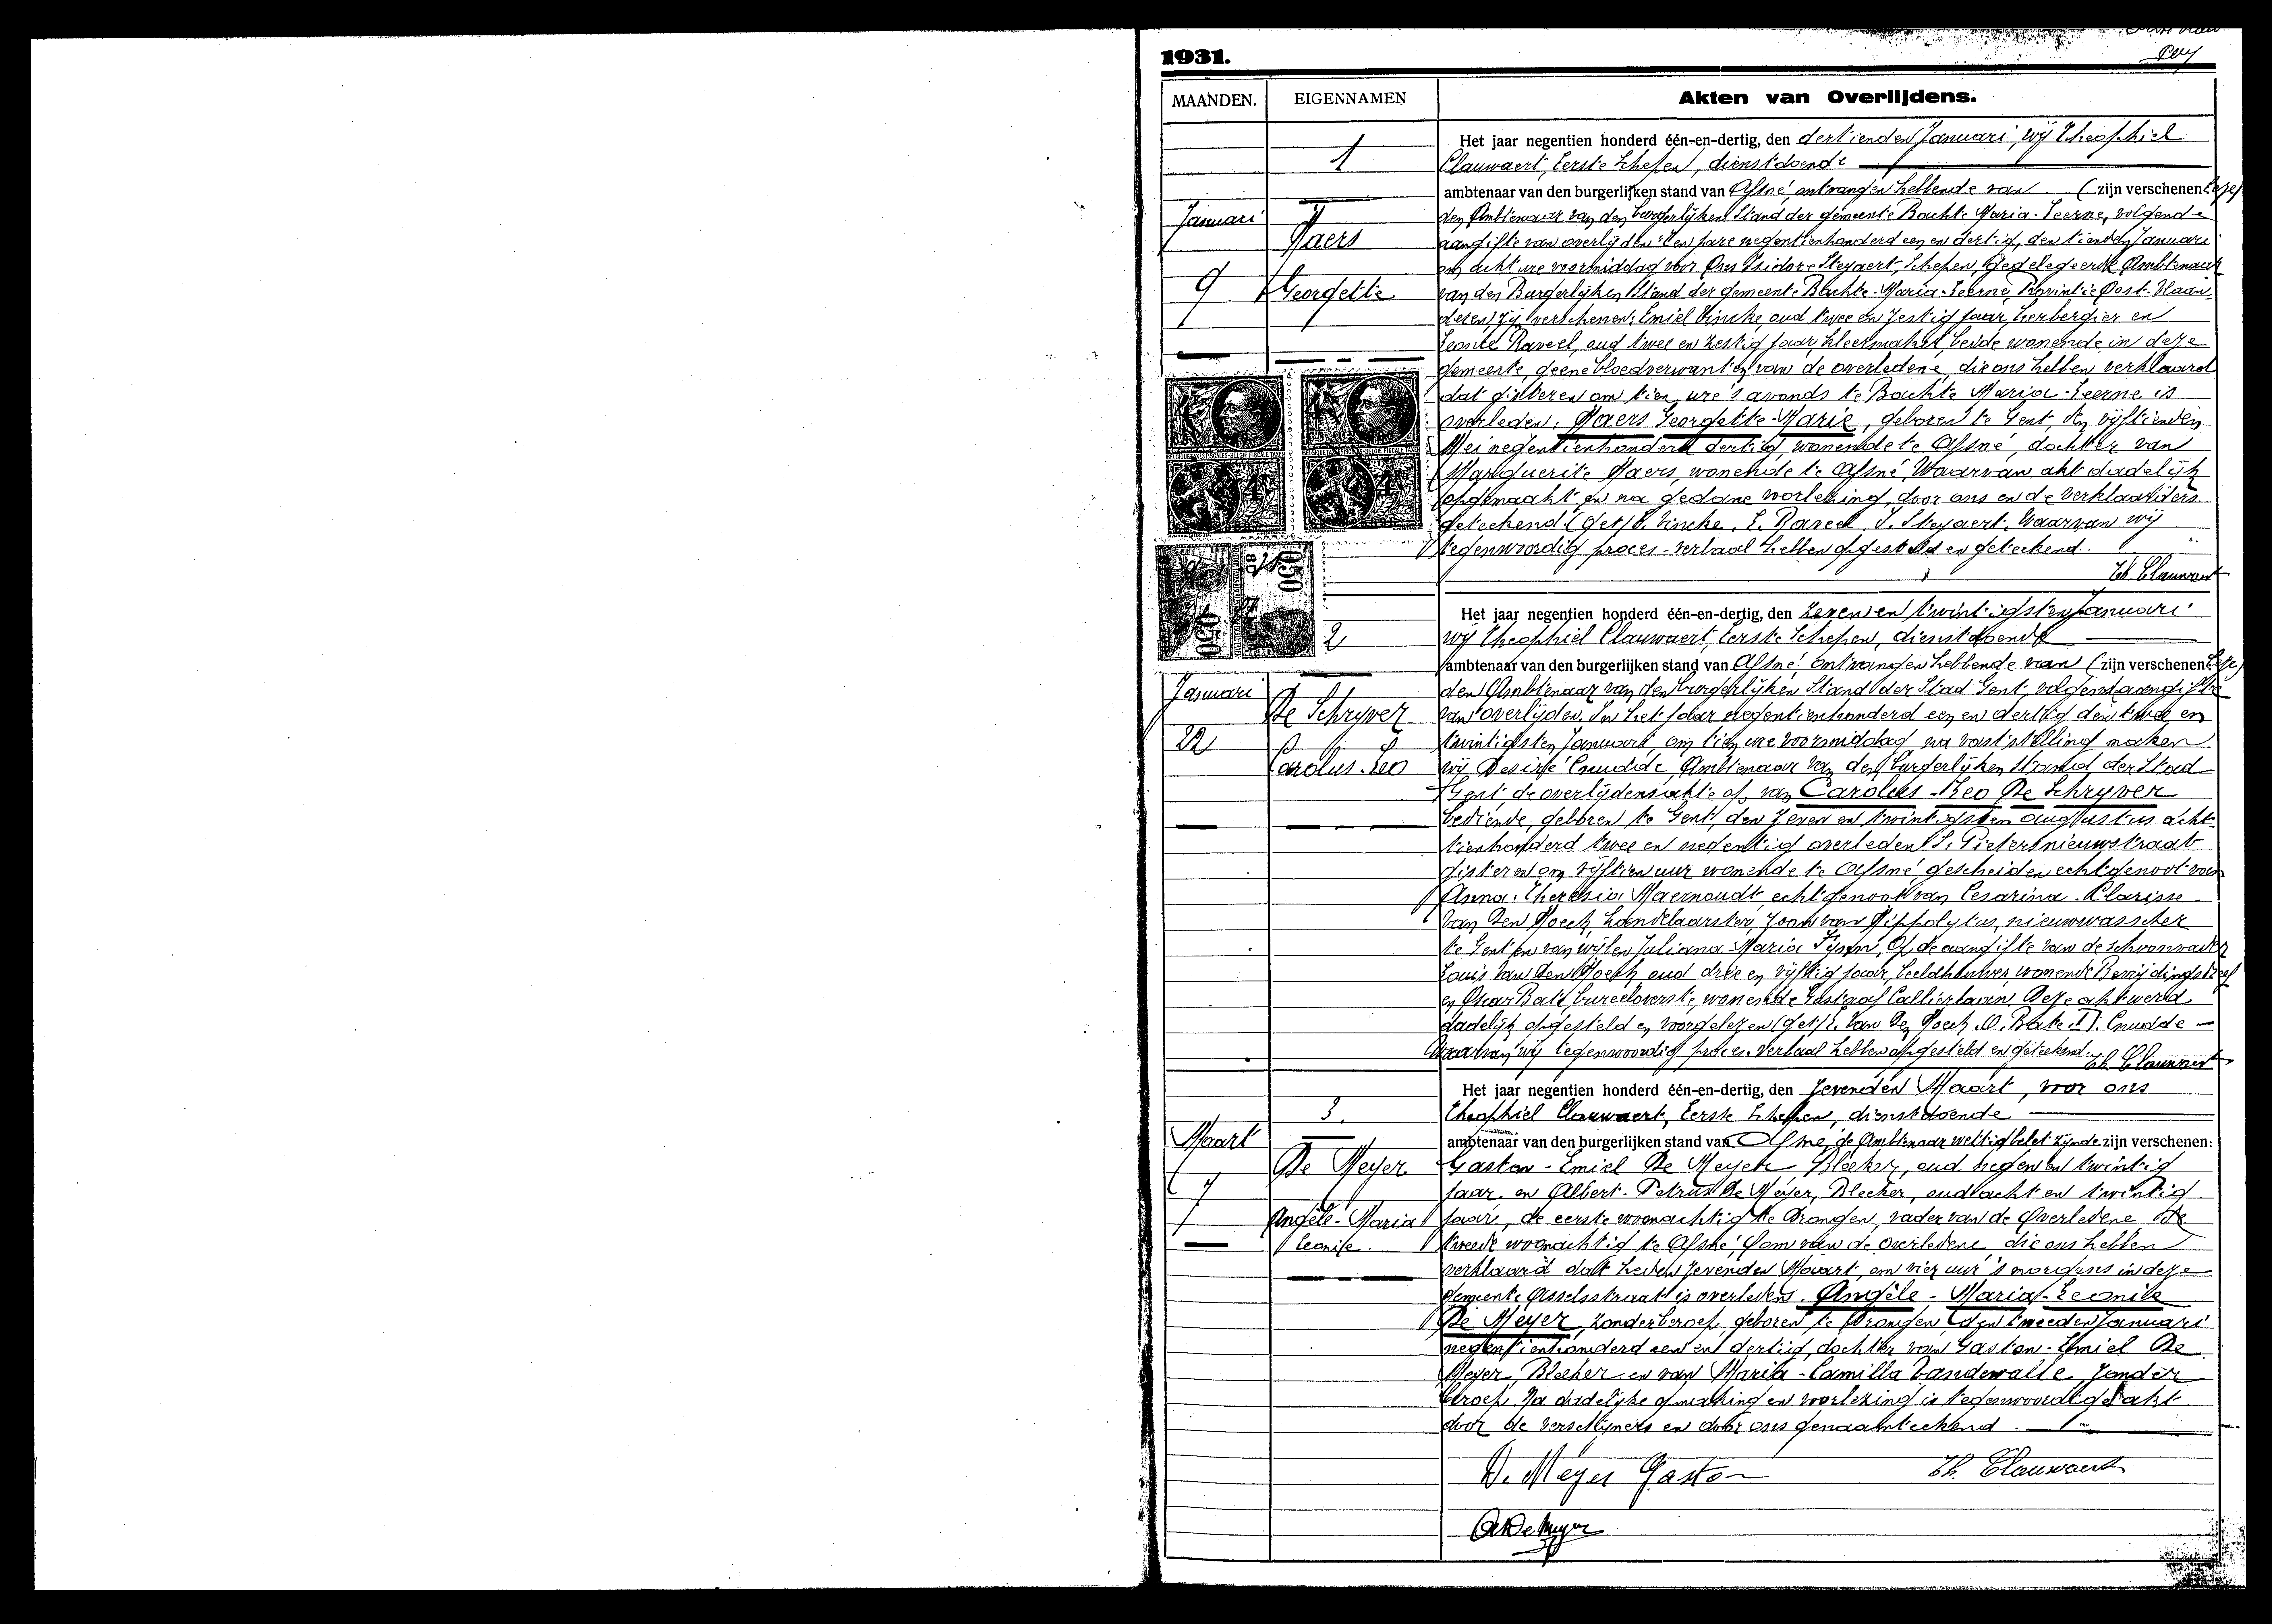 1931.
MAANDEN. EIGENNAMEN Akten van Overlijdens.
Het jaar negentien honderd één-en-dertig, den dertienden Januari, wij Theophiel
1
Clauwaert, Eerste Schepen, dienstdoende
ambtenaar van den burgerlijken stand van Afsné, ontvangen hebbende van (zijn verschenen:
Januari
den Ambtenaar van den burgerlijken Stand der gemeente Bachte Maria-Leerne, volgende
aangifte van overlijden: Ten jare negentienhonderd een en dertig, den tienden Januari
aers
om acht ure voormiddag voor Ons Isidore Steyaert, Schepen, gedelegeerde Ambtenaar
9
Georgette
van den Burgerlijken Stand der gemeente Bachte-Maria-Leerne, Provintie Oost-Vlaan-
deren, zijn verschenen: Emiel Vincke, oud twee en zestig jaar, herbergier en
Leonie Raveel, oud twee en zestig jaar, kleermaker, beide wonende in deze
gemeente, geene bloedverwanten van de overledene, die ons hebben verklaard
dat gisteren om tien ure 's avonds te Bachte Maria-Leerne, is
overleden: aers Georgette-Marie, geboren te Gent, den vijftienden
Mei negentienhonderd dertig, wonende te Afsné, dochter van
Marguerite aers, wonende te Afsné. Waarvan akt dadelijk
opgemaakt en na gedane voorlezing, door ons en de verklaarders
geteekend. (get) E. Vincke, L. Raveel, I. Steyaert. Waarvan wij
tegenwoordig proces-verbaal hebben opgesteld en geteekend.
Th. Clauwaert
Het jaar negentien honderd één-en-dertig, den zeven en twintigsten Januari
2
wij Theophiel Clauwaert, Eerste Schepen, dienstdoende
ambtenaar van den burgerlijken stand van Afsné: ontvangen hebbende van (zijn verschenen:
Januari
den Ambtenaar van den burgerlijken Stand der Stad Gent, volgende aangifte
De Schryver
van overlijden. In het jaar negentienhonderd een en dertig den twee en
22
twintigsten Januari, om tien ure voormiddag, na vaststelling maken
Carolus-Leo
wij Desiré Cnudde, Ambtenaar van den burgerlijken Stand der Stad
Gent, de overlijdensakte op van Carolus-Leo De Schryver
bediende, geboren te Gent, den zeven en twintigsten augustus acht-
tienhonderd twee en negentig overleden S. Pietersnieuwstraat
gisteren om vijftien uur wonende te Afsné, gescheiden echtgenoot van
Anna-Theresia Maernoudt, echtgenoot van Cesarina-Clarisse
Van Den Hoeck, handelaarster, zoon van Hippolytus, nieuwwasscher
te Gent en van wijlen Juliana-Maria Op de aangifte van de schoonvader
Louis Van Den Hoeck, oud drie en vijftig jaar, beeldhouwer, wonende
en Oscar bureeloverste, wonende Gustaaf Callierlaan. Deze akt werd
dadelijk opgesteld en voorgelezen (get) L. Van Den Hoeck, O. D. Cnudde
Waarvan wij tegenwoordig proces-verbaal hebben opgesteld en geteekend.
Th. Clauwaert
Het jaar negentien honderd één-en-dertig, den zevenden Maart, voor ons
3.
Theophiel Clauwaert, Eerste Schepen, dienstdoende
Maart
ambtenaar van den burgerlijken stand van Afsné, de Ambtenaar wettig belet zijnde zijn verschenen:
De Meyer
Gaston-Emiel De Meyer, Bleeker, oud negen en twintig
7
jaar, en Albert-Petrus De Meyer, Bleeker, oud acht en twintig
Angèle-Maria
jaar, de eerste woonachtig te Drongen, vader van de Overledene de
Leonie.
tweede woonachtig te Afsné, Oom van de overledene, die ons hebben
verklaard dat heden zevenden Maart, om vier uur 's morgens in deze
gemeente Asselsstraat is overleden. Angèle-Maria-Leonie
De Meyer, zonder beroep, geboren te Drongen, den tweeden Januari
negentienhonderd een en dertig, dochter van Gaston-Emiel De
Meyer, Bleeker en van Maria-Camilla Vandewalle, zonder
beroep. Na dadelijke opmaking en voorlezing is tegenwoordige akt
door de verschijners en door ons genaamteekend.
De Meyer Gaston Th. Clauwaert
De Meyer